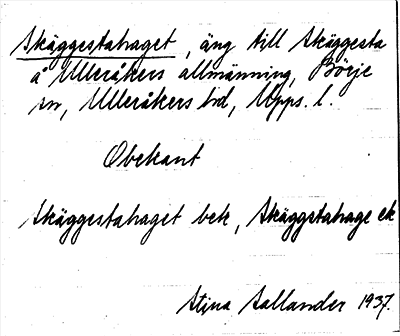 Skäggestahaget, äng till Skäggesta
å Ulleråkers allmänning, Börje
sn, Ulleråkers hd, Upps. l.
Obekant
Skäggestahaget bek, Skäggstahage ek
Stina Sallander 1937.